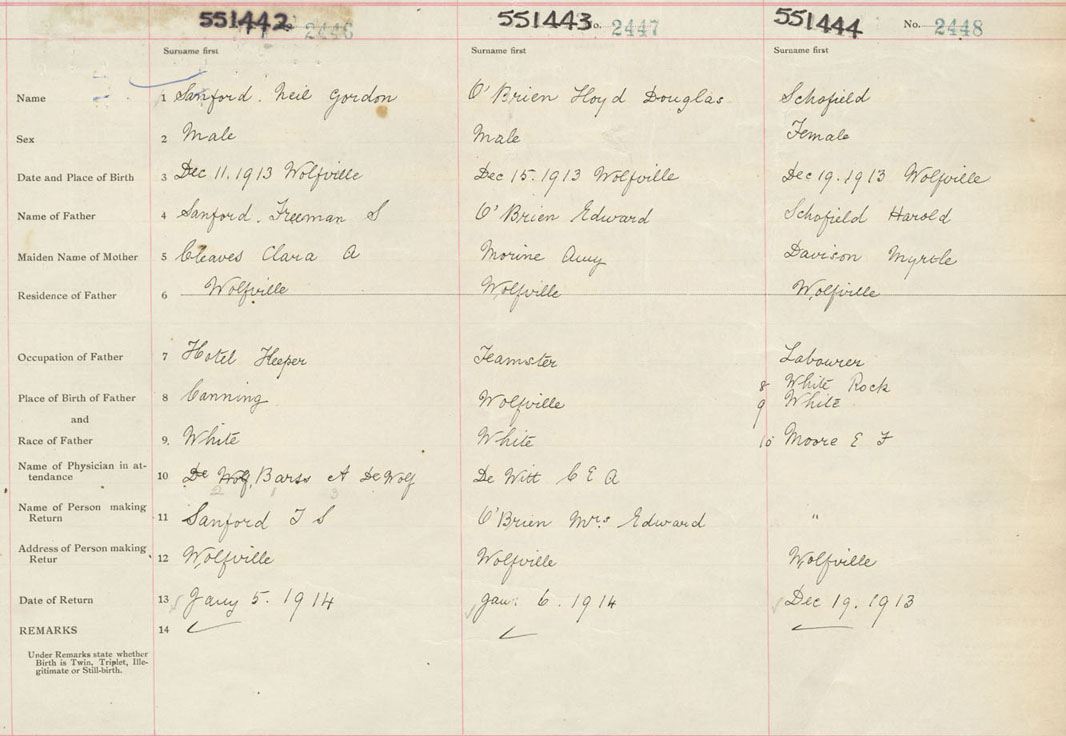 551442 2446 551443 No. 2447 551444 No. 2448
Surname first Surname first Surname first
Name 1 Sanford. Neil Gordon O'Brien Lloyd Douglas Schofield
Sex 2 Male Male Female
Date and Place of Birth 3 Dec 11. 1913 Wolfville Dec 15. 1913 Wolfville Dec 19. 1913 Wolfville
Name of Father 4 Sanford. Freeman S O'Brien Edward Schofield Harold
Maiden Name of Mother 5 Cleaves Clara A Morine Amy Davison Myrtle
Residence of Father 6 Wolfville Wolfville Wolfville
Occupation of Father 7 Hotel Keeper Teamster Labourer
8 White Rock
Place of Birth of Father 8 Canning Wolfville 9 White
and
Race of Father 9. White White 10 Moore E F
Name of Physician in at-
tendance 10 De Wolf, Barss A DeWolf De Witt C E A
Name of Person making
Return 11 Sanford F S O'Brien Mrs Edward "
Address of Person making
Retur 12 Wolfville Wolfville Wolfville
Date of Return 13 Jany 5. 1914 Jan: 6. 1914 Dec 19. 1913
REMARKS 14
Under Remarks state whether
Birth is Twin, Triplet, Ille-
gitimate or Still-birth.